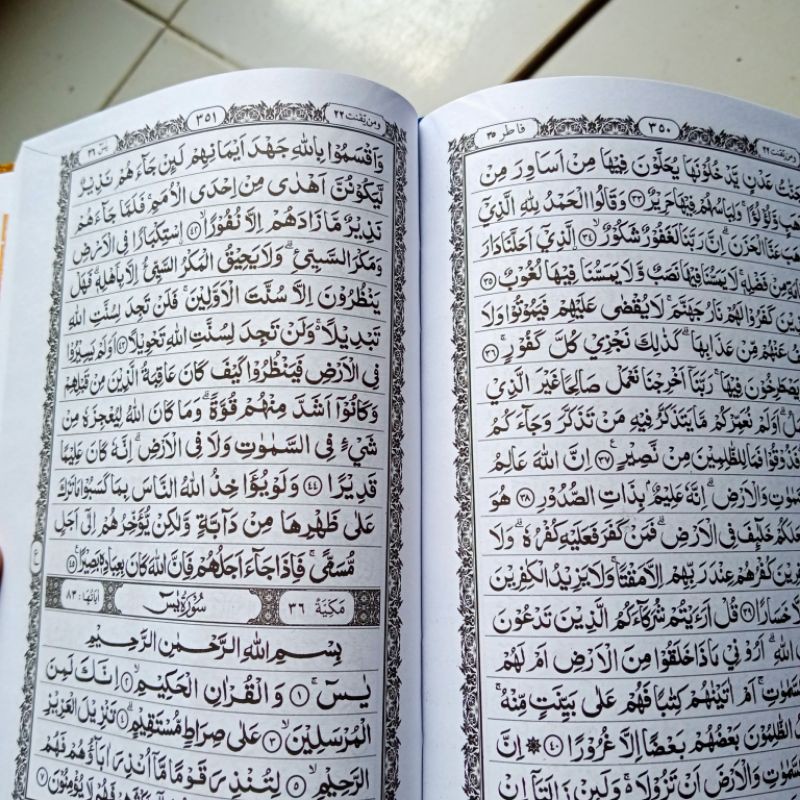 فاطر ٣٥
٣٥٠
ومن يقنت ٢٢
عَدْنٍ يَّدْخُلُوْنَهَا يُحَلَّوْنَ فِيْهَا مِنْ اَسَاوِرَ مِنْ
وَّلُؤْلُؤًا ۚ وَلِبَاسُهُمْ فِيْهَا حَرِيْرٌ ٣٣ وَقَالُوا الْحَمْدُ لِلّٰهِ الَّذِيْٓ
عَنَّا الْحَزَنَ ۗ اِنَّ رَبَّنَا لَغَفُوْرٌ شَكُوْرٌ ۙ ٣٤ الَّذِيْٓ اَحَلَّنَا دَارَ
مِنْ فَضْلِهٖ ۚ لَا يَمَسُّنَا فِيْهَا نَصَبٌ وَّلَا يَمَسُّنَا فِيْهَا لُغُوْبٌ ٣٥
كَفَرُوْا لَهُمْ نَارُ جَهَنَّمَ ۚ لَا يُقْضٰى عَلَيْهِمْ فَيَمُوْتُوْا وَلَا
عَنْهُمْ مِّنْ عَذَابِهَا ۗ كَذٰلِكَ نَجْزِيْ كُلَّ كَفُوْرٍ ۚ ٣٦
يَصْطَرِخُوْنَ فِيْهَا ۚ رَبَّنَآ اَخْرِجْنَا نَعْمَلْ صَالِحًا غَيْرَ الَّذِيْ
اَوَلَمْ نُعَمِّرْكُمْ مَّا يَتَذَكَّرُ فِيْهِ مَنْ تَذَكَّرَ وَجَاۤءَكُمُ
فَذُوْقُوْا فَمَا لِلظّٰلِمِيْنَ مِنْ نَّصِيْرٍ ٣٧ اِنَّ اللّٰهَ عَالِمُ
وَالْاَرْضِ ۗ اِنَّهٗ عَلِيْمٌ ۢ بِذَاتِ الصُّدُوْرِ ٣٨ هُوَ
خَلٰۤىِٕفَ فِى الْاَرْضِ ۗ فَمَنْ كَفَرَ فَعَلَيْهِ كُفْرُهٗ ۗ وَلَا
كُفْرُهُمْ عِنْدَ رَبِّهِمْ اِلَّا مَقْتًا ۚ وَلَا يَزِيْدُ الْكٰفِرِيْنَ
خَسَارًا ٣٩ قُلْ اَرَءَيْتُمْ شُرَكَاۤءَكُمُ الَّذِيْنَ تَدْعُوْنَ
اللّٰهِ ۗ اَرُوْنِيْ مَاذَا خَلَقُوْا مِنَ الْاَرْضِ اَمْ لَهُمْ
السَّمٰوٰتِ ۚ اَمْ اٰتَيْنٰهُمْ كِتٰبًا فَهُمْ عَلٰى بَيِّنَتٍ مِّنْهُ ۚ
الظّٰلِمُوْنَ بَعْضُهُمْ بَعْضًا اِلَّا غُرُوْرًا ٤٠ ۞ اِنَّ
وَالْاَرْضَ اَنْ تَزُوْلَا ۚ وَلَىِٕنْ زَالَتَآ اِنْ
ومن يقنت ٢٢
٣٥١
يس ٣٦
وَاَقْسَمُوْا بِاللّٰهِ جَهْدَ اَيْمَانِهِمْ لَىِٕنْ جَاۤءَهُمْ نَذِيْرٌ
لَّيَكُوْنُنَّ اَهْدٰى مِنْ اِحْدَى الْاُمَمِ ۚ فَلَمَّا جَاۤءَهُمْ
نَذِيْرٌ مَّا زَادَهُمْ اِلَّا نُفُوْرًا ۙ ٤٢ اسْتِكْبَارًا فِى الْاَرْضِ
وَمَكْرَ السَّيِّئِ ۗ وَلَا يَحِيْقُ الْمَكْرُ السَّيِّئُ اِلَّا بِاَهْلِهٖ ۗ فَهَلْ
يَنْظُرُوْنَ اِلَّا سُنَّتَ الْاَوَّلِيْنَ ۚ فَلَنْ تَجِدَ لِسُنَّتِ اللّٰهِ
تَبْدِيْلًا ۚ وَلَنْ تَجِدَ لِسُنَّتِ اللّٰهِ تَحْوِيْلًا ٤٣ اَوَلَمْ يَسِيْرُوْا
فِى الْاَرْضِ فَيَنْظُرُوْا كَيْفَ كَانَ عَاقِبَةُ الَّذِيْنَ مِنْ قَبْلِهِمْ
وَكَانُوْٓا اَشَدَّ مِنْهُمْ قُوَّةً ۗ وَمَا كَانَ اللّٰهُ لِيُعْجِزَهٗ مِنْ
شَيْءٍ فِى السَّمٰوٰتِ وَلَا فِى الْاَرْضِ ۗ اِنَّهٗ كَانَ عَلِيْمًا
قَدِيْرًا ٤٤ وَلَوْ يُؤَاخِذُ اللّٰهُ النَّاسَ بِمَا كَسَبُوْا مَا تَرَكَ
عَلٰى ظَهْرِهَا مِنْ دَاۤبَّةٍ وَّلٰكِنْ يُّؤَخِّرُهُمْ اِلٰٓى اَجَلٍ
مُّسَمًّى ۚ فَاِذَا جَاۤءَ اَجَلُهُمْ فَاِنَّ اللّٰهَ كَانَ بِعِبَادِهٖ بَصِيْرًا ٤٥
مَكِّيَّةٌ ٣٦ سُوْرَةُ يٰسٓ اٰيَاتُهَا : ٨٣
بِسْمِ اللّٰهِ الرَّحْمٰنِ الرَّحِيْمِ
يٰسۤ ۚ ١ وَالْقُرْاٰنِ الْحَكِيْمِ ۙ ٢ اِنَّكَ لَمِنَ
الْمُرْسَلِيْنَ ۙ ٣ عَلٰى صِرَاطٍ مُّسْتَقِيْمٍ ۗ ٤ تَنْزِيْلَ الْعَزِيْزِ
الرَّحِيْمِ ۙ ٥ لِتُنْذِرَ قَوْمًا مَّآ اُنْذِرَ اٰبَاۤؤُهُمْ فَهُمْ
فَهُمْ لَا يُؤْمِنُوْنَ ٧